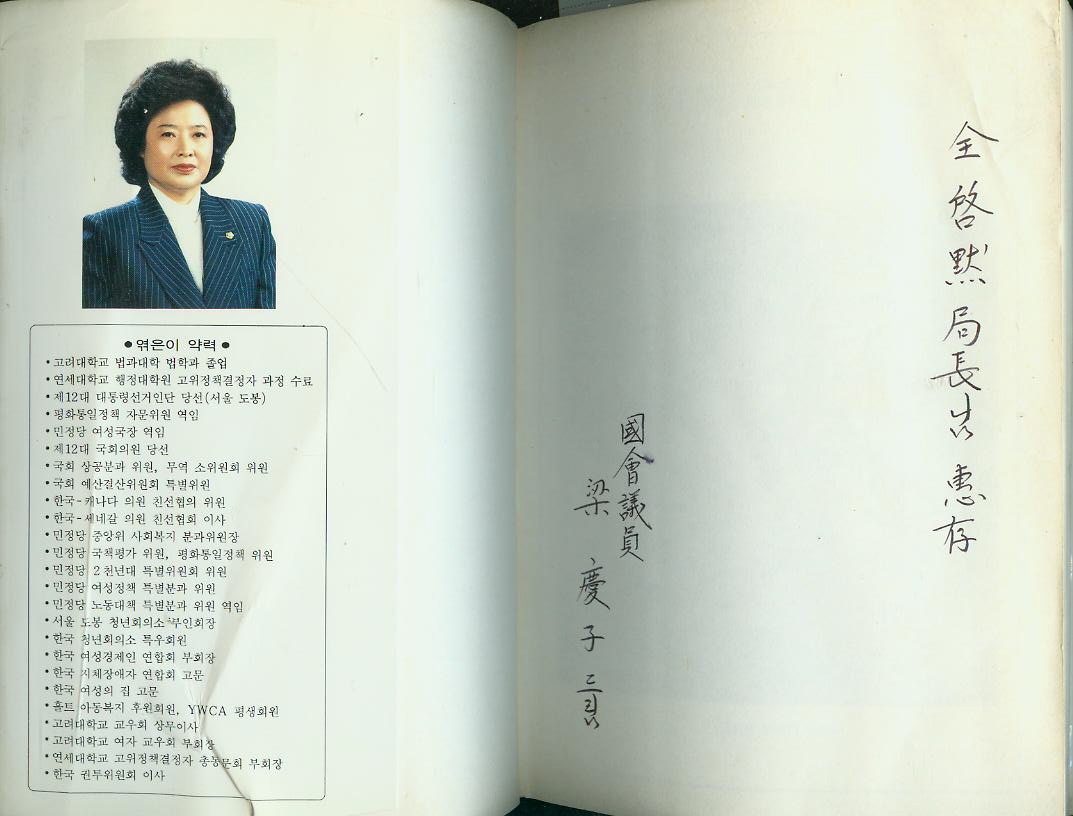 ● 엮은이 약력 ●
• 고려대학교 법과대학 법학과 졸업
• 연세대학교 행정대학원 고위정책결정자 과정 수료
• 제12대 대통령선거인단 당선(서울 도봉)
• 평화통일정책 자문위원 역임
• 민정당 여성국장 역임
• 제12대 국회의원 당선
• 국회 상공분과 위원, 무역 소위원회 위원
• 국회 예산결산위원회 특별위원
• 한국-캐나다 의원 친선협의 위원
• 한국-세네갈 의원 친선협회 이사
• 민정당 중앙위 사회복지 분과위원장
• 민정당 국책평가 위원, 평화통일정책 위원
• 민정당 2천년대 특별위원회 위원
• 민정당 여성정책 특별분과 위원
• 민정당 노동대책 특별분과 위원 역임
• 서울 도봉 청년회의소 부인회장
• 한국 청년회의소 특우회원
• 한국 여성경제인 연합회 부회장
• 한국 지체장애자 연합회 고문
• 한국 여성의 집 고문
• 홀트 아동복지 후원회원, YWCA 평생회원
• 고려대학교 교우회 상무이사
• 고려대학교 여자 교우회 부회장
• 연세대학교 고위정책결정자 총동문회 부회장
• 한국 권투위원회 이사
全啓默局長 惠存
國會議員
梁慶子